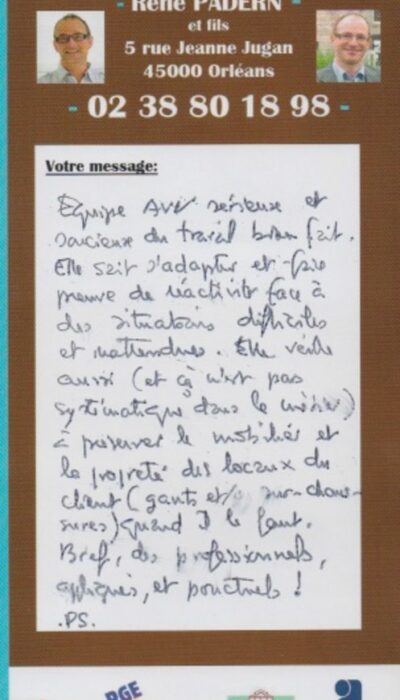 - René PADERN -
et fils
5 rue Jeanne Jugan
45000 Orléans
- 02 38 80 18 98 -
Votre message:
Equipe sérieuse et
soucieuse du travail bien fait.
Elle sait s'adapter et faire
preuve de réactivité face à
des situations difficiles
et inattendues. Elle veille
aussi (et ça n'est pas
systématique dans le métier)
à préserver le mobilier et
la propreté des locaux du
client (gants et/ou sur-chaus-
sures) quand il le faut.
Bref, des professionnels,
appliqués, et ponctuels !
.PS.
RGE